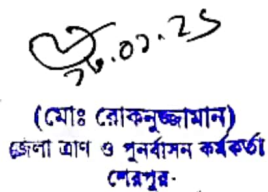 ২৬.০২.২৫
(মোঃ রোকনুজ্জামান)
জেলা ত্রাণ ও পুনর্বাসন কর্মকর্তা
শেরপুর।